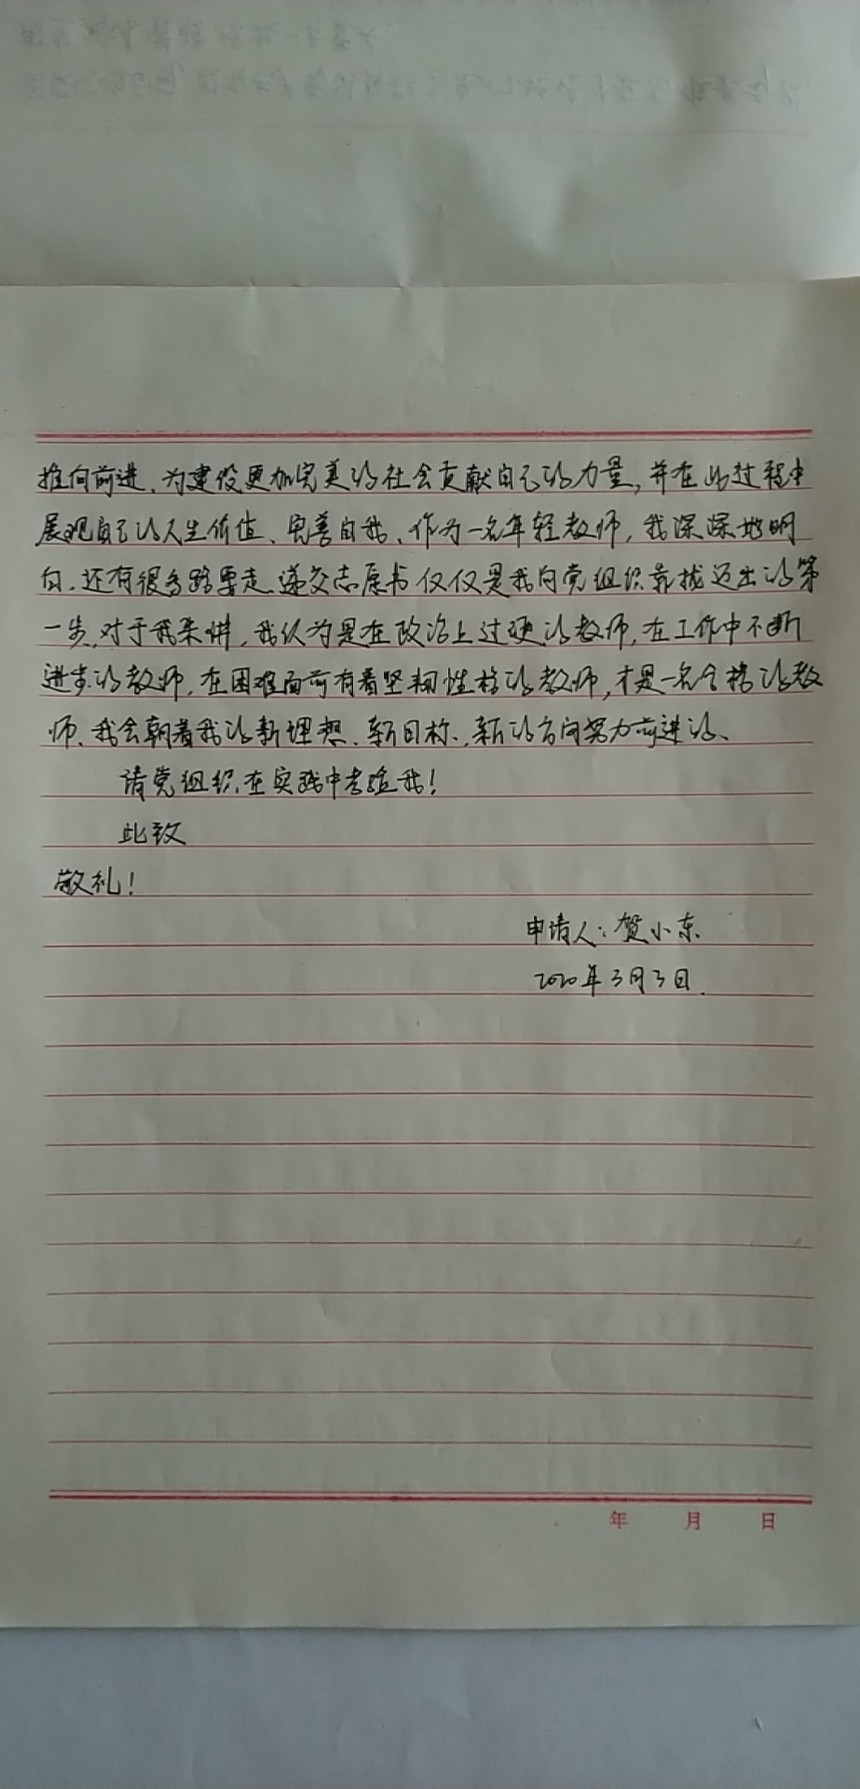 推向前进、为建设更加完美的社会贡献自己的力量，并在此过程中
展现自己的人生价值、完善自我、作为一名年轻教师，我深深地明
白、还有很多路要走、递交志愿书仅仅是我向党组织靠拢迈出的第
一步、对于我来讲、我认为是在政治上过硬的教师，在工作中不断
进步的教师，在困难面前有着坚韧性格的教师，才是一名合格的教
师、我会朝着我的新理想、新目标、新的方向努力前进的、
请党组织在实践中考验我！
此致
敬礼！
申请人：贺小东
2020年3月3日.
年 月 日